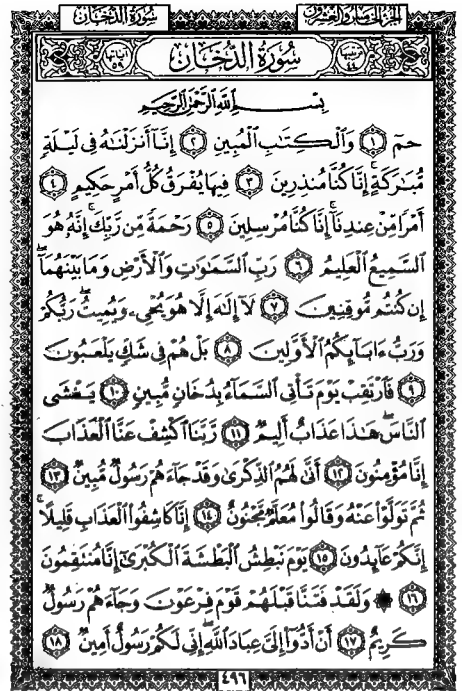 الجزء الخامس والعشرون
سُورَةُ الدُّخَانِ
ترتيبها ٤٤
سُورَةُ الدُّخَانِ
آياتها ٥٩
بِسْمِ اللَّهِ الرَّحْمَٰنِ الرَّحِيمِ
حمٓ ١ وَٱلْكِتَٰبِ ٱلْمُبِينِ ٢ إِنَّآ أَنزَلْنَٰهُ فِى لَيْلَةٍ
مُّبَٰرَكَةٍ ۚ إِنَّا كُنَّا مُنذِرِينَ ٣ فِيهَا يُفْرَقُ كُلُّ أَمْرٍ حَكِيمٍ ٤
أَمْرًا مِّنْ عِندِنَآ ۚ إِنَّا كُنَّا مُرْسِلِينَ ٥ رَحْمَةً مِّن رَّبِّكَ ۚ إِنَّهُۥ هُوَ
ٱلسَّمِيعُ ٱلْعَلِيمُ ٦ رَبِّ ٱلسَّمَٰوَٰتِ وَٱلْأَرْضِ وَمَا بَيْنَهُمَآ ۖ
إِن كُنتُم مُّوقِنِينَ ٧ لَآ إِلَٰهَ إِلَّا هُوَ يُحْىِۦ وَيُمِيتُ ۖ رَبُّكُمْ
وَرَبُّ ءَابَآئِكُمُ ٱلْأَوَّلِينَ ٨ بَلْ هُمْ فِى شَكٍّ يَلْعَبُونَ
٩ فَٱرْتَقِبْ يَوْمَ تَأْتِى ٱلسَّمَآءُ بِدُخَانٍ مُّبِينٍ ١٠ يَغْشَى
ٱلنَّاسَ ۖ هَٰذَا عَذَابٌ أَلِيمٌ ١١ رَّبَّنَا ٱكْشِفْ عَنَّا ٱلْعَذَابَ
إِنَّا مُؤْمِنُونَ ١٢ أَنَّىٰ لَهُمُ ٱلذِّكْرَىٰ وَقَدْ جَآءَهُمْ رَسُولٌ مُّبِينٌ ١٣
ثُمَّ تَوَلَّوْا۟ عَنْهُ وَقَالُوا۟ مُعَلَّمٌ مَّجْنُونٌ ١٤ إِنَّا كَاشِفُوا۟ ٱلْعَذَابِ قَلِيلًا ۚ
إِنَّكُمْ عَآئِدُونَ ١٥ يَوْمَ نَبْطِشُ ٱلْبَطْشَةَ ٱلْكُبْرَىٰٓ إِنَّا مُنتَقِمُونَ
١٦ ۞ وَلَقَدْ فَتَنَّا قَبْلَهُمْ قَوْمَ فِرْعَوْنَ وَجَآءَهُمْ رَسُولٌ
كَرِيمٌ ١٧ أَنْ أَدُّوٓا۟ إِلَىَّ عِبَادَ ٱللَّهِ ۖ إِنِّى لَكُمْ رَسُولٌ أَمِينٌ ١٨
٤٩٦